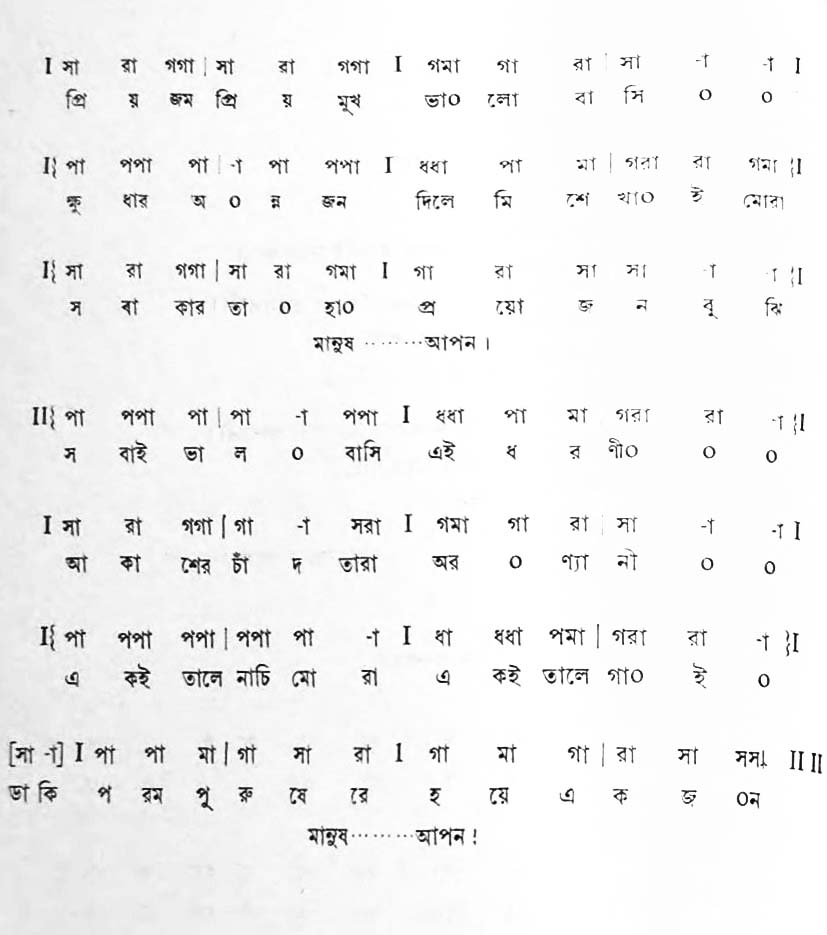 I সা রা গগা | সা রা গগা I গমা গা রা | সা -া -া I
প্রি য় জম প্রি য় মুখ ভা০ লো বা সি ০ ০
I{ পা পপা পা | -া পা পপা I ধধা পা মা | গরা রা গমা }I
ক্ষু ধার অ ০ ন্ন জন দিলে মি শে খা০ ই মোরা
I{ সা রা গগা | সা রা গমা I গা রা সা সা -া -া }I
স বা কার তা ০ হা০ প্র য়ো জ ন বু ঝি
মানুষ ········ আপন।
II{ পা পপা পা | পা -া পপা I ধধা পা মা গরা রা -া }I
স বাই ভা ল ০ বাসি এই ধ র ণী০ ০ ০
I সা রা গগা | গা -া সরা I গমা গা রা | সা -া -া I
আ কা শের চাঁ দ তারা অর ০ ণ্যা নী ০ ০
I{ পা পপা পপা | পপা পা -া I ধা ধধা পমা | গরা রা -া }I
এ কই তালে নাচি মো রা এ কই তালে গা০ ই ০
[সা -া] I পা পা মা | গা সা রা I গা মা গা | রা সা সসা II II
ডা কি প রম পু রু ষে রে হ য়ে এ ক জ ০ন
মানুষ ········· আপন!